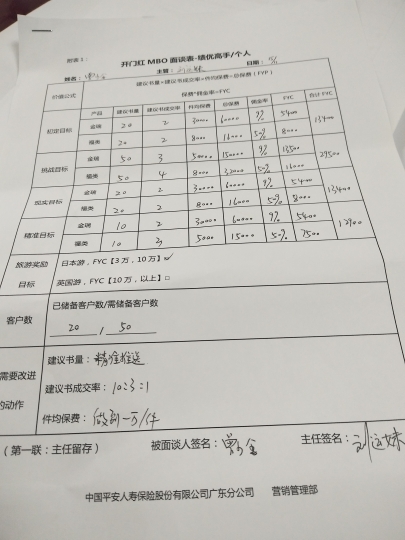 附表1:
开门红 MBO 面谈表-绩优高手/个人
姓名: 主管: 日期:
价值公式 建议书量*建议书成交率*件均保费=总保费(FYP)
保费*佣金率=FYC
产品 建议书量 建议书成交率 件均保费 总保费 佣金率 FYC 合计FYC
初定目标 金瑞 20 2 30000 60000 9% 5400 13400
福类 20 2 8000 16000 50% 8000
挑战目标 金瑞 50 3 50000 150000 9% 13500 29500
福类 50 4 8000 32000 50% 16000
现实目标 金瑞 20 2 30000 60000 9% 5400 13400
福类 20 2 8000 16000 50% 8000
精准目标 金瑞 10 2 30000 60000 9% 5400 12900
福类 10 3 5000 15000 50% 7500
旅游奖励 日本游,FYC【3万,10万】☑
目标 英国游,FYC【10万,以上】□
客户数 已储备客户数/需储备客户数
20 / 50
需要改进 建议书量:精准推送
的动作 建议书成交率:10:3:1
件均保费:做到一万/件
(第一联:主任留存) 被面谈人签名: 主任签名:
中国平安人寿保险股份有限公司广东分公司 营销管理部